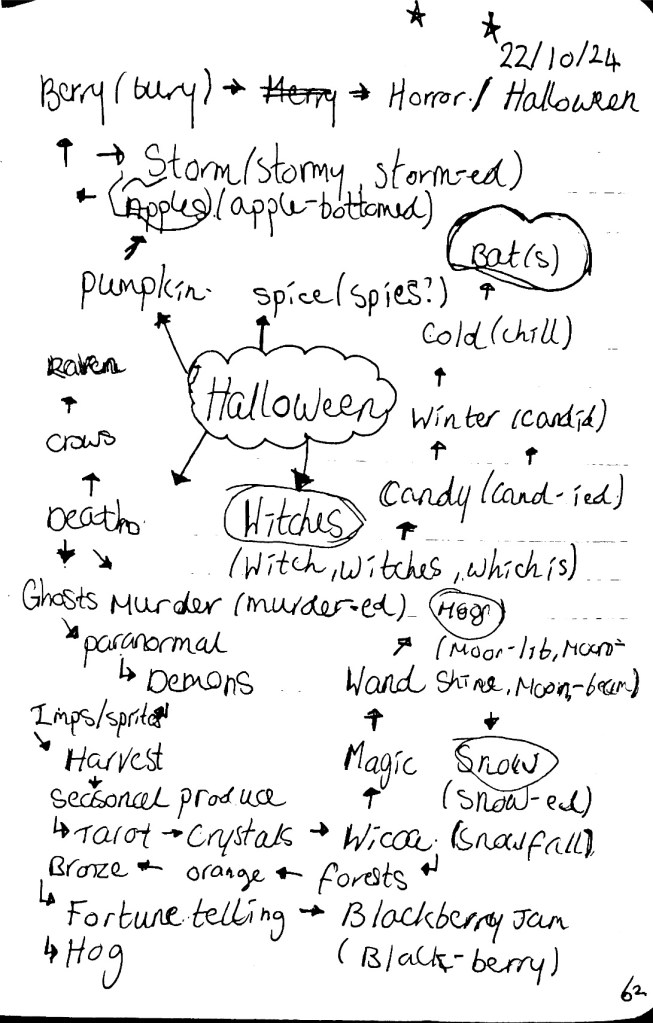 22/10/24
Berry (bury) → Merry → Horror / Halloween
↑ → Storm (stormy, storm-ed)
← (Apples) (apple-bottomed)
Bat(s)
pumpkin. spice (spies?)
Cold (chill)
Raven
Halloween
Winter (candid)
Crows
Candy (cand-ied)
Death
Witches
(Witch, witches, which is)
Ghosts Murder (murder-ed)
paranormal
(Moon-lit, Moon-
↳ Demons
Wand shine, Moon-beam)
Imps/sprites
Harvest
Magic Snow
seasonal produce (snow-ed)
↳ Tarot → Crystals → Wicca. (snowfall)
Bronze ← orange ← forests
↳ Fortune telling → Blackberry Jam
↳ Hog (Black-berry)
62